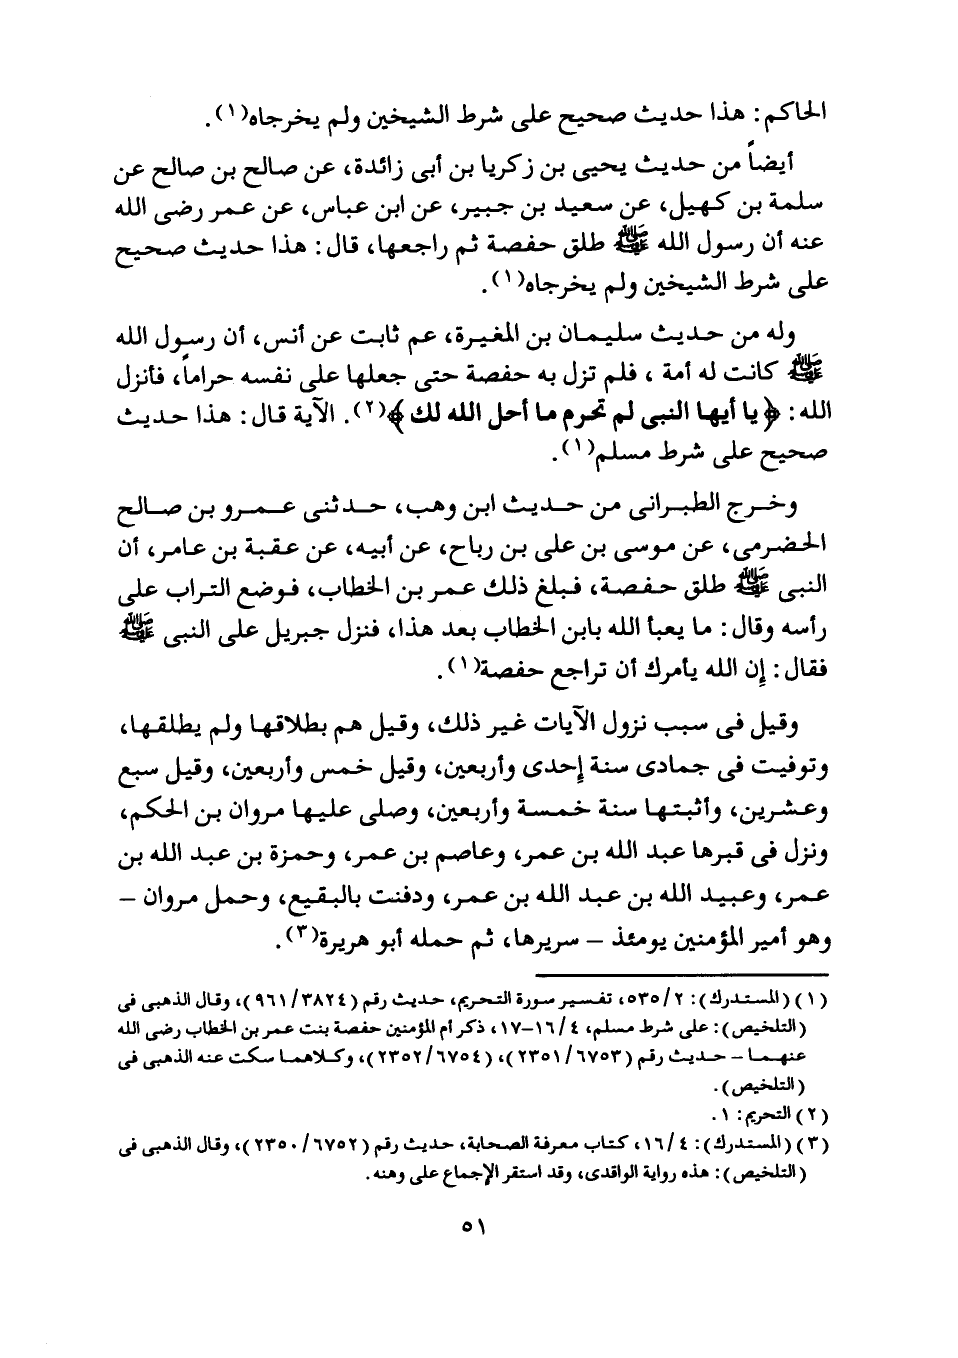 الحاكم: هذا حديث صحيح على شرط الشيخين ولم يخرجاه(١).
أيضاً من حديث يحيى بن زكريا بن أبى زائدة، عن صالح بن صالح عن
سلمة بن كهيل، عن سعيد بن جبير، عن ابن عباس، عن عمر رضى الله
عنه أن رسول الله ﷺ طلق حفصة ثم راجعها، قال: هذا حديث صحيح
على شرط الشيخين ولم يخرجاه(١).
وله من حديث سليمان بن المغيرة، عم ثابت عن أنس، أن رسول الله
ﷺ كانت له أمة ، فلم تزل به حفصة حتى جعلها على نفسه حراماً، فأنزل
الله: ﴿يا أيها النبى لم تحرم ما أحل الله لك﴾(٢). الآية قال: هذا حديث
صحيح على شرط مسلم(١).
وخرج الطبرانى من حديث ابن وهب، حدثنى عمرو بن صالح
الحضرمى، عن موسى بن على بن رباح، عن أبيه، عن عقبة بن عامر، أن
النبى ﷺ طلق حفصة، فبلغ ذلك عمر بن الخطاب، فوضع التراب على
رأسه وقال: ما يعبأ الله بابن الخطاب بعد هذا، فنزل جبريل على النبى ﷺ
فقال: إن الله يأمرك أن تراجع حفصة(١).
وقيل فى سبب نزول الآيات غير ذلك، وقيل هم بطلاقها ولم يطلقها،
وتوفيت فى جمادى سنة إحدى وأربعين، وقيل خمس وأربعين، وقيل سبع
وعشرين، وأثبتها سنة خمسة وأربعين، وصلى عليها مروان بن الحكم،
ونزل فى قبرها عبد الله بن عمر، وعاصم بن عمر، وحمزة بن عبد الله بن
عمر، وعبيد الله بن عبد الله بن عمر، ودفنت بالبقيع، وحمل مروان –
وهو أمير المؤمنين يومئذ – سريرها، ثم حمله أبو هريرة(٣).
(١) (المستدرك): ٢/ ٥٣٥، تفسير سورة التحريم، حديث رقم (٣٨٢٤/ ٩٦١)، وقال الذهبى فى
(التلخيص): على شرط مسلم، ٤/ ١٦-١٧، ذكر أم المؤمنين حفصة بنت عمر بن الخطاب رضى الله
عنهما – حديث رقم (٦٧٥٣/ ٢٣٥١)، (٦٧٥٤/ ٢٣٥٢)، وكلاهما سكت عنه الذهبى فى
(التلخيص).
(٢) التحريم: ١.
(٣) (المستدرك): ٤/ ١٦، كتاب معرفة الصحابة، حديث رقم (٦٧٥٢/ ٢٣٥٠)، وقال الذهبى فى
(التلخيص): هذه رواية الواقدى، وقد استقر الإجماع على وهنه.
٥١